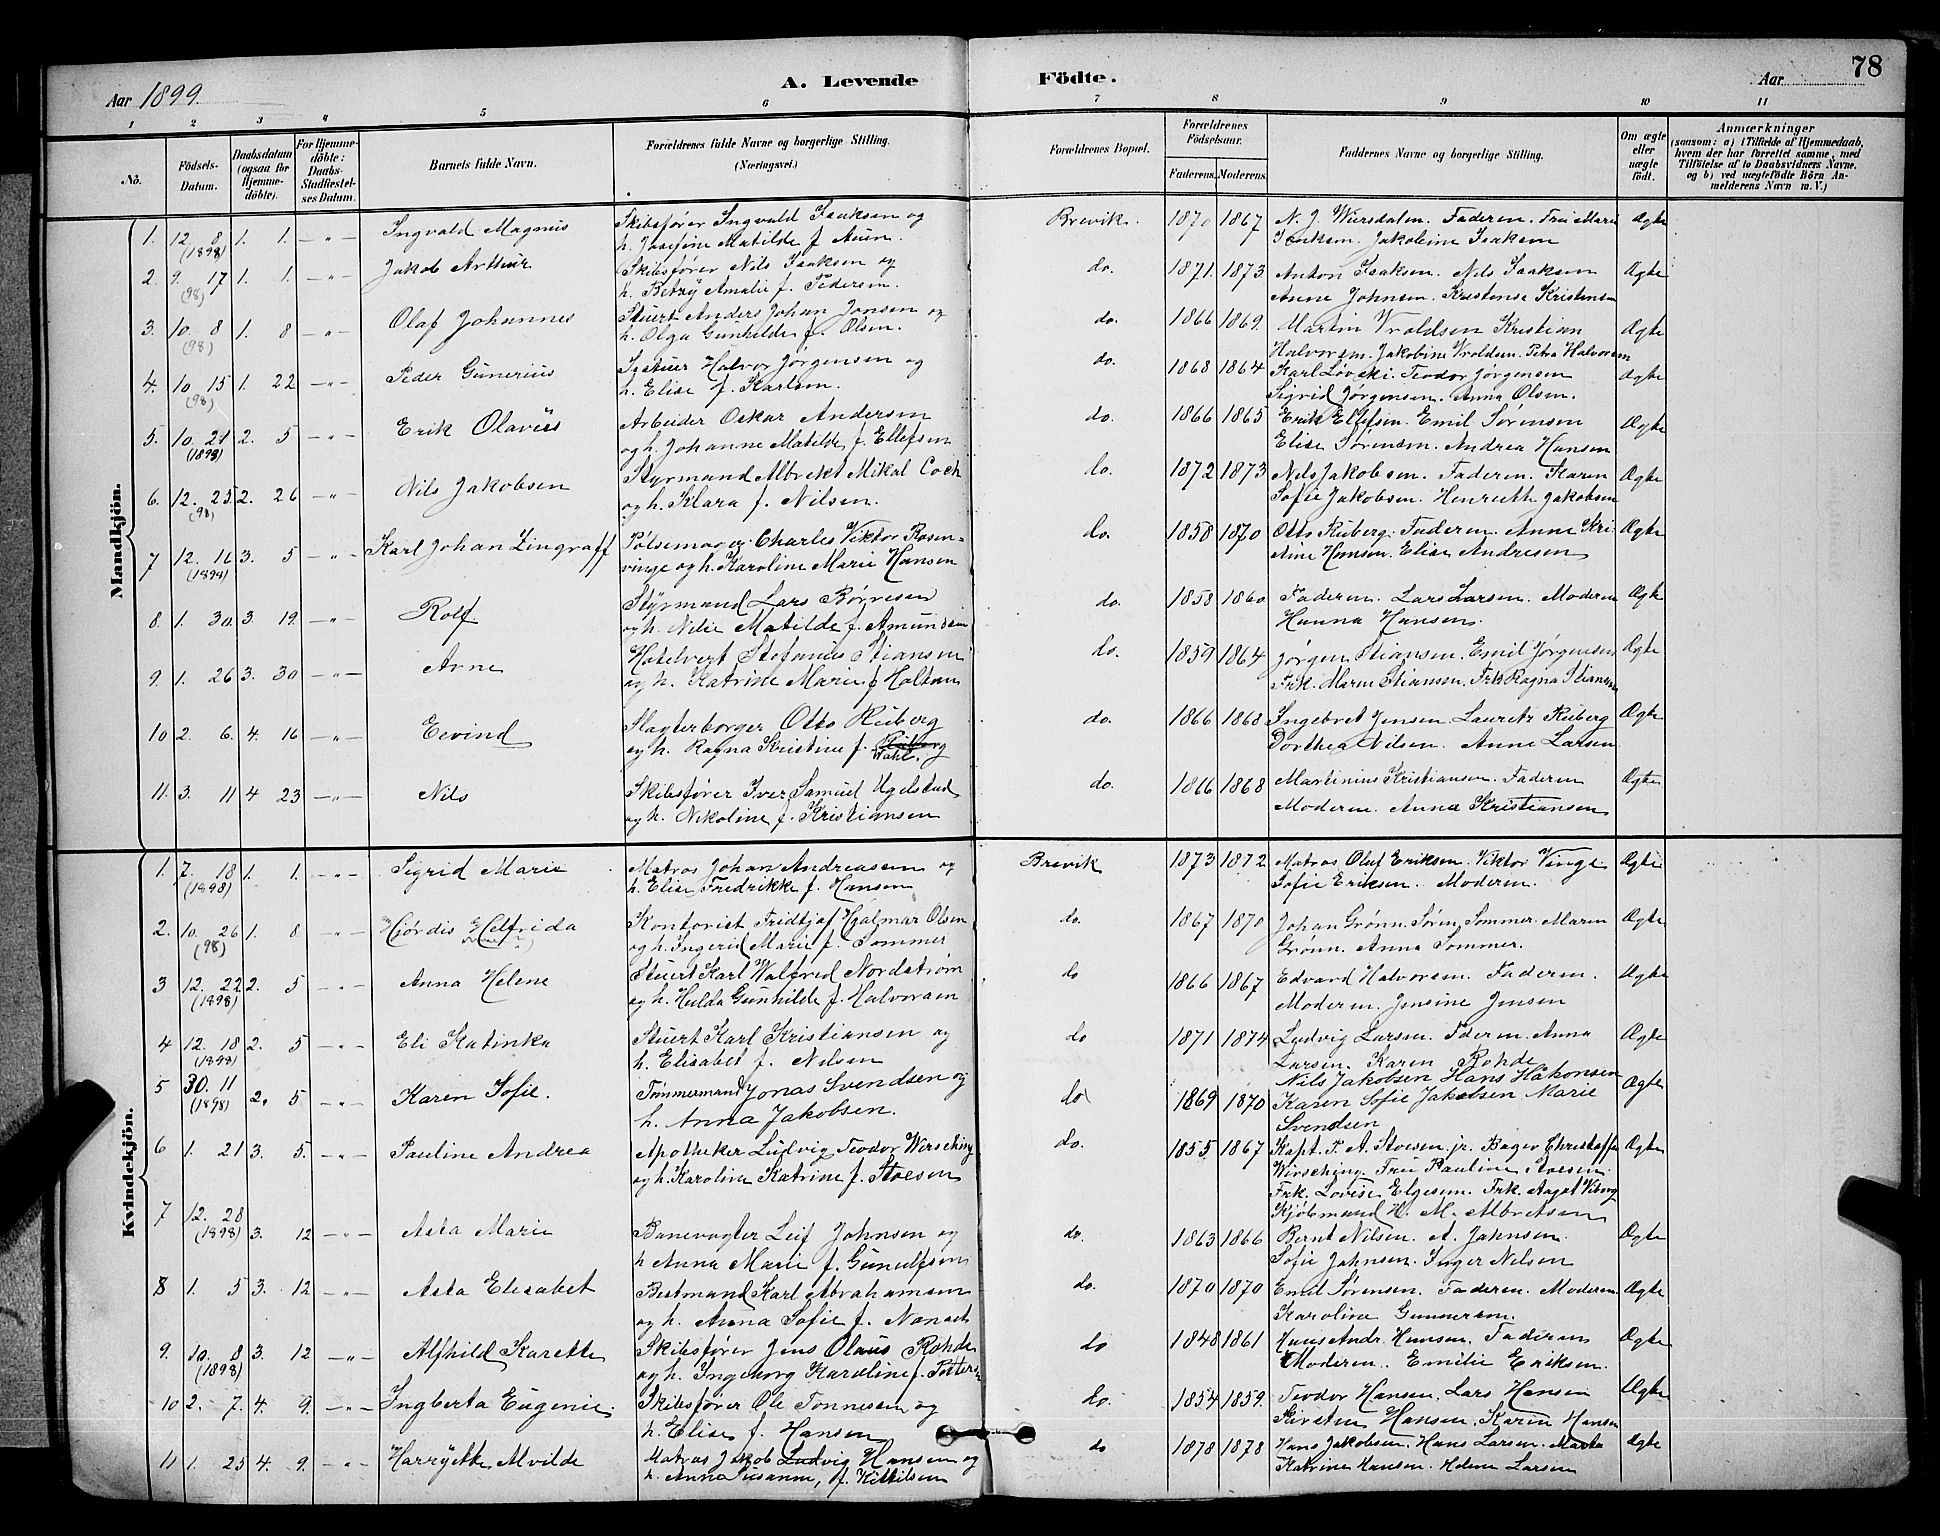 Aar 1899.
A. Levende
Födte.
Aar
78
1 2 3 4 5 6 7 8 9 10 11
No.
Födsels-Datum.
Daabsdatum (ogsaa for Hjemme-döbte).
For Hjemme-döbte: Daabs-Stadfæstel-ses Datum.
Barnets fulde Navn.
Forældrenes fulde Navne og borgerlige Stilling. (Næringsvei.)
Forældrenes Bopæl.
Forældrenes Födselsaar.
Faderens. Moderens.
Faddernes Navne og borgerlige Stilling.
Om ægte eller uægte födt.
Anmærkninger
(saasom: a) i Tilfælde af Hjemmedaab, hvem der har forrettet samme, med Tilföielse af to Daabsvidners Navne. og b) ved uægtefödte Börn An-melderens Navn m. V.)
Mandkjön.
1. 12. 8 (1898) 1. 1. Ingvald Magnus Skibsfører Ingvald Isaksen og Brevik. 1870 1867 Faderen. Fru Marie Ægte
h. Josefine Matilde f. Jakobine Isaksen
2. 9. 17 (98) 1. 1. Jakob Arthur Skibsfører Nils Isaksen og do. 1871. 1873. Anton Isaksen. Nils Isaksen Ægte
h. Betzy Amalie f. Pedersen. Anne Johnsen. Kristense Kristensen
3. 10. 8 (98) 1. 8 Olaf Johannes Stuert Anders Johan Jansen og do. 1866 1869. Martin Vroldsen Kristian Ægte
h. Olga Gunhilde f. Olsen. Halvorsen. Jakobine Vroldsen. Petra Halvorsen
4. 10. 15 (98) 1. 22 Peder Gunerius Halvor Jørgensen og do. 1868 1864 Karl Teodor Jørgensen Ægte
h. Elise f. Karlsen. Sigrid Jørgensen. Anna Olsen.
5. 10. 21 (1898) 2. 5 Erik Olavus Arbeider Oskar Andersen do. 1866 1865 Erik Ellefsen. Emil Sørensen Ægte
og h. Johanne Matilde f. Ellefsen Elise Sørensen. Andrea Hansen
6. 12. 25 (98) 2. 26 Nils Jakobsen Styrmand Albrekt Mikal Coch do. 1872 1873 Nils Jakobsen. Faderen. Karen Ægte
og h. Klara f. Nilsen. Sofie Jakobsen. Henriette Jakobsen
7 12. 16 (1898) 3. 5 Karl Johan Zingraff Pølsemager Charles Viktor Rosen- do. 1858 1870 Otto Ruberg. Faderen. Anne Kri- Ægte
vinge og h. Karoline Marie Hansen stine Hansen. Elise Andresen
8. 1. 30. 3. 19. Rolf Styrmand Lars Børresen do. 1858 1860 Faderen. Lars Larsen. Moderen Ægte
og h. Nilie Matilde f. Amundsen Hanna Hansen.
9. 1. 26 3. 30 Arne Hotelvert Stefanus Stiansen do. 1859 1864 Jørgen Stiansen. Emil Jørgensen Ægte
og h. Katrine Marie f. Holtan Frk. Maren Stiansen. Frk Ragna Stiansen
10 2. 6. 4. 16 Eivind Slagterborger Otto Ruberg do. 1866 1868 Ingebret Jensen. Lauretz Ruberg Ægte
og h. Ragna Kristine f. Ruberg Dahl. Dorthea Nilsen. Anne Larsen
11. 3. 11 4 23 Nils Skibsfører Iver Samuel Ugelstad do. 1866 1868 Martinius Kristiansen. Faderen Ægte
og h. Nikoline f. Kristiansen Moderen. Anna Kristiansen
Kvindekjön.
1. 7. 18 (1898) 1. 1. Sigrid Marie Matros Johan Andreasen og Brevik 1873 1872. Matros Oluf Eriksen. Viktor Vinge Ægte
h. Elise Fredrikke f. Hansen Sofie Eriksen. Moderen.
2. 10. 26 (98) 1. 8 Hjørdis Helfrida Kontorist Fridtjof Hjalmar Olsen do. 1867 1870 Johan Grønn. Søren Sommer. Maren Ægte
og h. Ingerid Marie f. Sommer Grønn. Anna Sommer.
3 12. 22 (1898) 2. 5 Anna Helene Stuert Karl Walfred Nordstrøm do 1866 1867 Edvard Halvorsen. Faderen. Ægte
og h. Hulda Gunhilde f. Halvorsen Moderen. Jensine Jensen
4 12. 18 (1898) 2. 5 Eli Katinka Stuert Karl Kristiansen og do 1871 1874 Ludvig Larsen. Faderen. Anna Ægte
h. Elisabet f. Nilsen Larsen. Karen Rohde
5 30. 11 (1898) 2. 5 Karen Sofie. Tømmermand Jonas Svendsen og do 1869 1870 Nils Jakobsen Hans Håkonsen Ægte
h. Anna Jakobsen. Karen Sofie Jakobsen Marie
Svendsen
6 1. 21 3. 5. Pauline Andrea Apotheker Ludvig Teodor Wirsching do. 1855 1867 Kapt. P. A. Stoesen jr. Bager Christoffer Ægte
og h. Karoline Katrine f. Stoesen Wirsching. Fru Pauline Stoesen
Frk. Lovise Elgesem. Frk. Aagot Viborg
Kjøbmand H. M. Albretsen
7 12. 28 (1898) 3. 12 Asta Marie Banevogter Leif Johnsen og do. 1863 1866 Bernt Nilsen. A. Johnsen. Ægte
h Anna Marie f. Gunulfsen Sofie Johnsen. Inger Nilsen
8 1. 5 3. 12 Asta Elisabet Bestmand Karl Abrahamsen do. 1870 1870 Emil Sørensen. Faderen. Moderen Ægte
og h. Anna Sofie f. Karoline Gunnersen.
9. 10. 8 (1898) 3. 12 Alfhild Karette Skibsfører Jens Olaus Rohde do 1848 1861 Hans Andr. Hansen. Faderen Ægte
og h. Ingeborg Karoline f. Moderen. Emilie Eriksen.
10 2. 7. 4. 9. Ingberta Eugenie. Skibsfører Ole Tønnesen og do. 1854 1859. Teodor Hansen. Lars Hansen Ægte
h. Elise f. Hansen Kirsten Hansen. Karen Hansen
11 1. 25 4. 9. Harryette Alvilde Matros Jakob Ludvig Hansen og do 1878 1878 Hans Jakobsen. Hans Larsen. Marta Ægte
h. Anna Susanne, f. Kittilsen Katrine Hansen. Helene Larsen